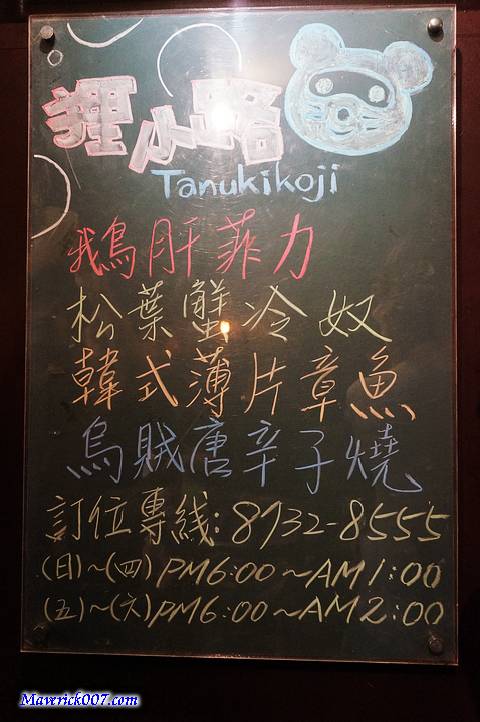 狸小路
Tanukikoji
鵝肝菲力
松葉蟹冷奴
韓式薄片章魚
烏賊唐辛子燒
訂位專線:8932-8555
(日)~(四)PM6:00~AM1:00
(五)~(六)PM6:00~AM2:00
Maverick007.com